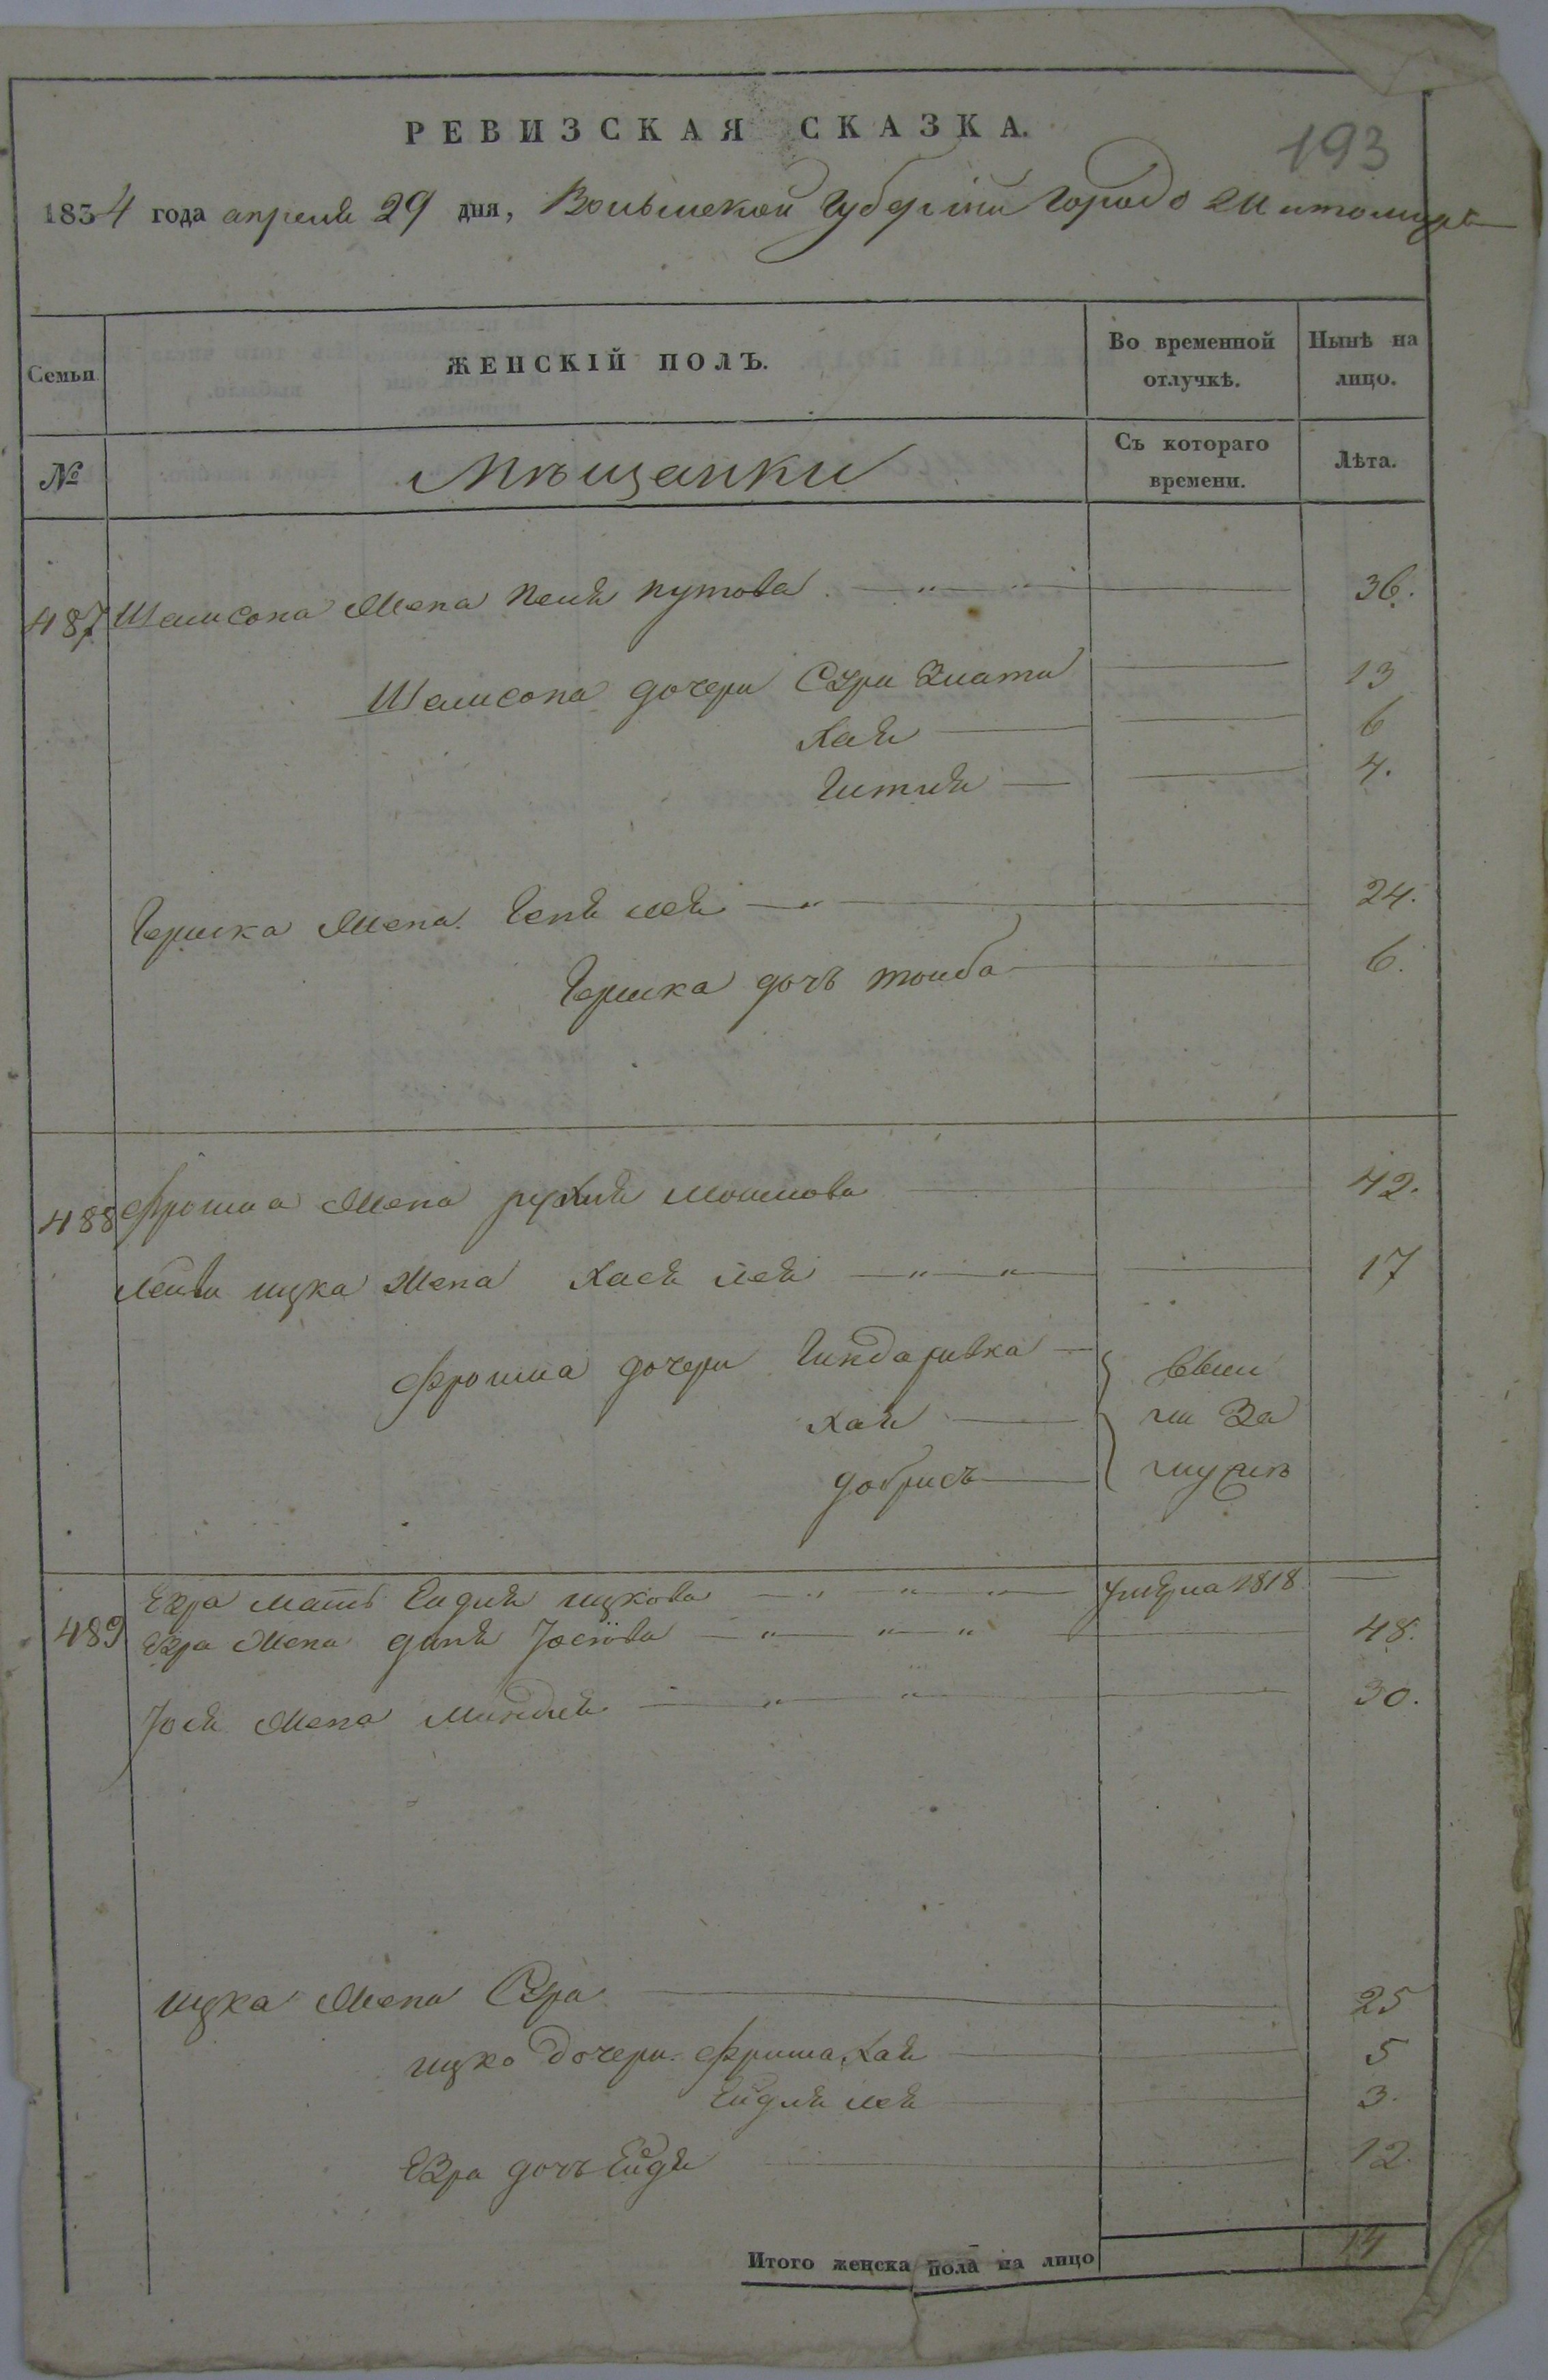 РЕВИЗСКАЯ СКАЗКА.
193
1834 года апреля 29 дня, Волынской Губернии Города Житомира
Семьи
ЖЕНСКІЙ ПОЛЪ.
Во временной отлучкѣ.
Нынѣ на лицо.
№
Мѣщанки
Съ котораго времени.
Лѣта.
487 Шамсона жена Песя нутова 36.
Шамсона дочери Сура Злата 13
Хая 6
Гитля 4.
Гершка жена Геня лея 24.
Гершка дочь тоиба 6.
488 Фроима жена рухля мошкова 42.
Лейви ицка жена Хася лея 17
Фроима дочери Гиндаривка выш
хая ли За
добрись мужъ
489 Езра мать Ейдля ицкова умерла 1818
Езра жена диня Іосіова 48.
Іося жена миндля 30.
ицка жена Сура 25
ицко дочери Фрима Хая 5
Ейдля лея 3.
Езра дочь Ейдя 12.
Итого женска пола на лицо 14